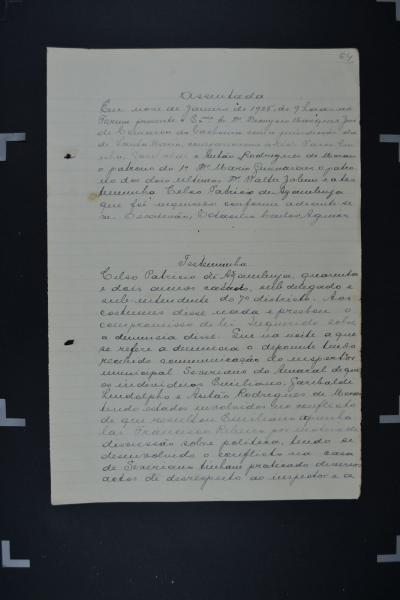 64
Assentada
Em nove de Janeiro de 1928, ás 9 horas no
Forum presente o Exmo. Sr. Dr. Dionysio Marques Juiz
de Comarca de Cachoeira com jurisdicção
de Santa Maria, compareceram
Antão Rodrigues de Moraes
o patrono do 1º Dr. Mario e o patro-
no dos dois ultimos Dr. Walter Jobim e a tes-
temunha Celso Patricio de Azambuja
que foi inquirido conforme adeante se
vê. Escrivão,
Testemunha
Celso Patricio de Azambuja, quarenta
e dois annos casado, sub delegado e
sub-intendente do 7º districto. Aos
costumes disse nada e prestou o
compromisso da lei. Inquirido sobre
a denuncia disse: Que na noite a que
se refere a denuncia o depoente tendo
recebido communicação do inspector
municipal do Amaral de que
os individuos Emiliano, Garibaldi
Lindolpho e Antão Rodrigues de Moraes
tendo estado involvidos no conflicto
de que resultou Emiliano
Francisco Ribeiro por motivo de
discussão sobre politica, tendo se
desenvolvido o conflicto na casa
de tinham praticado diversos
actos de desrespeito ao inspector e a